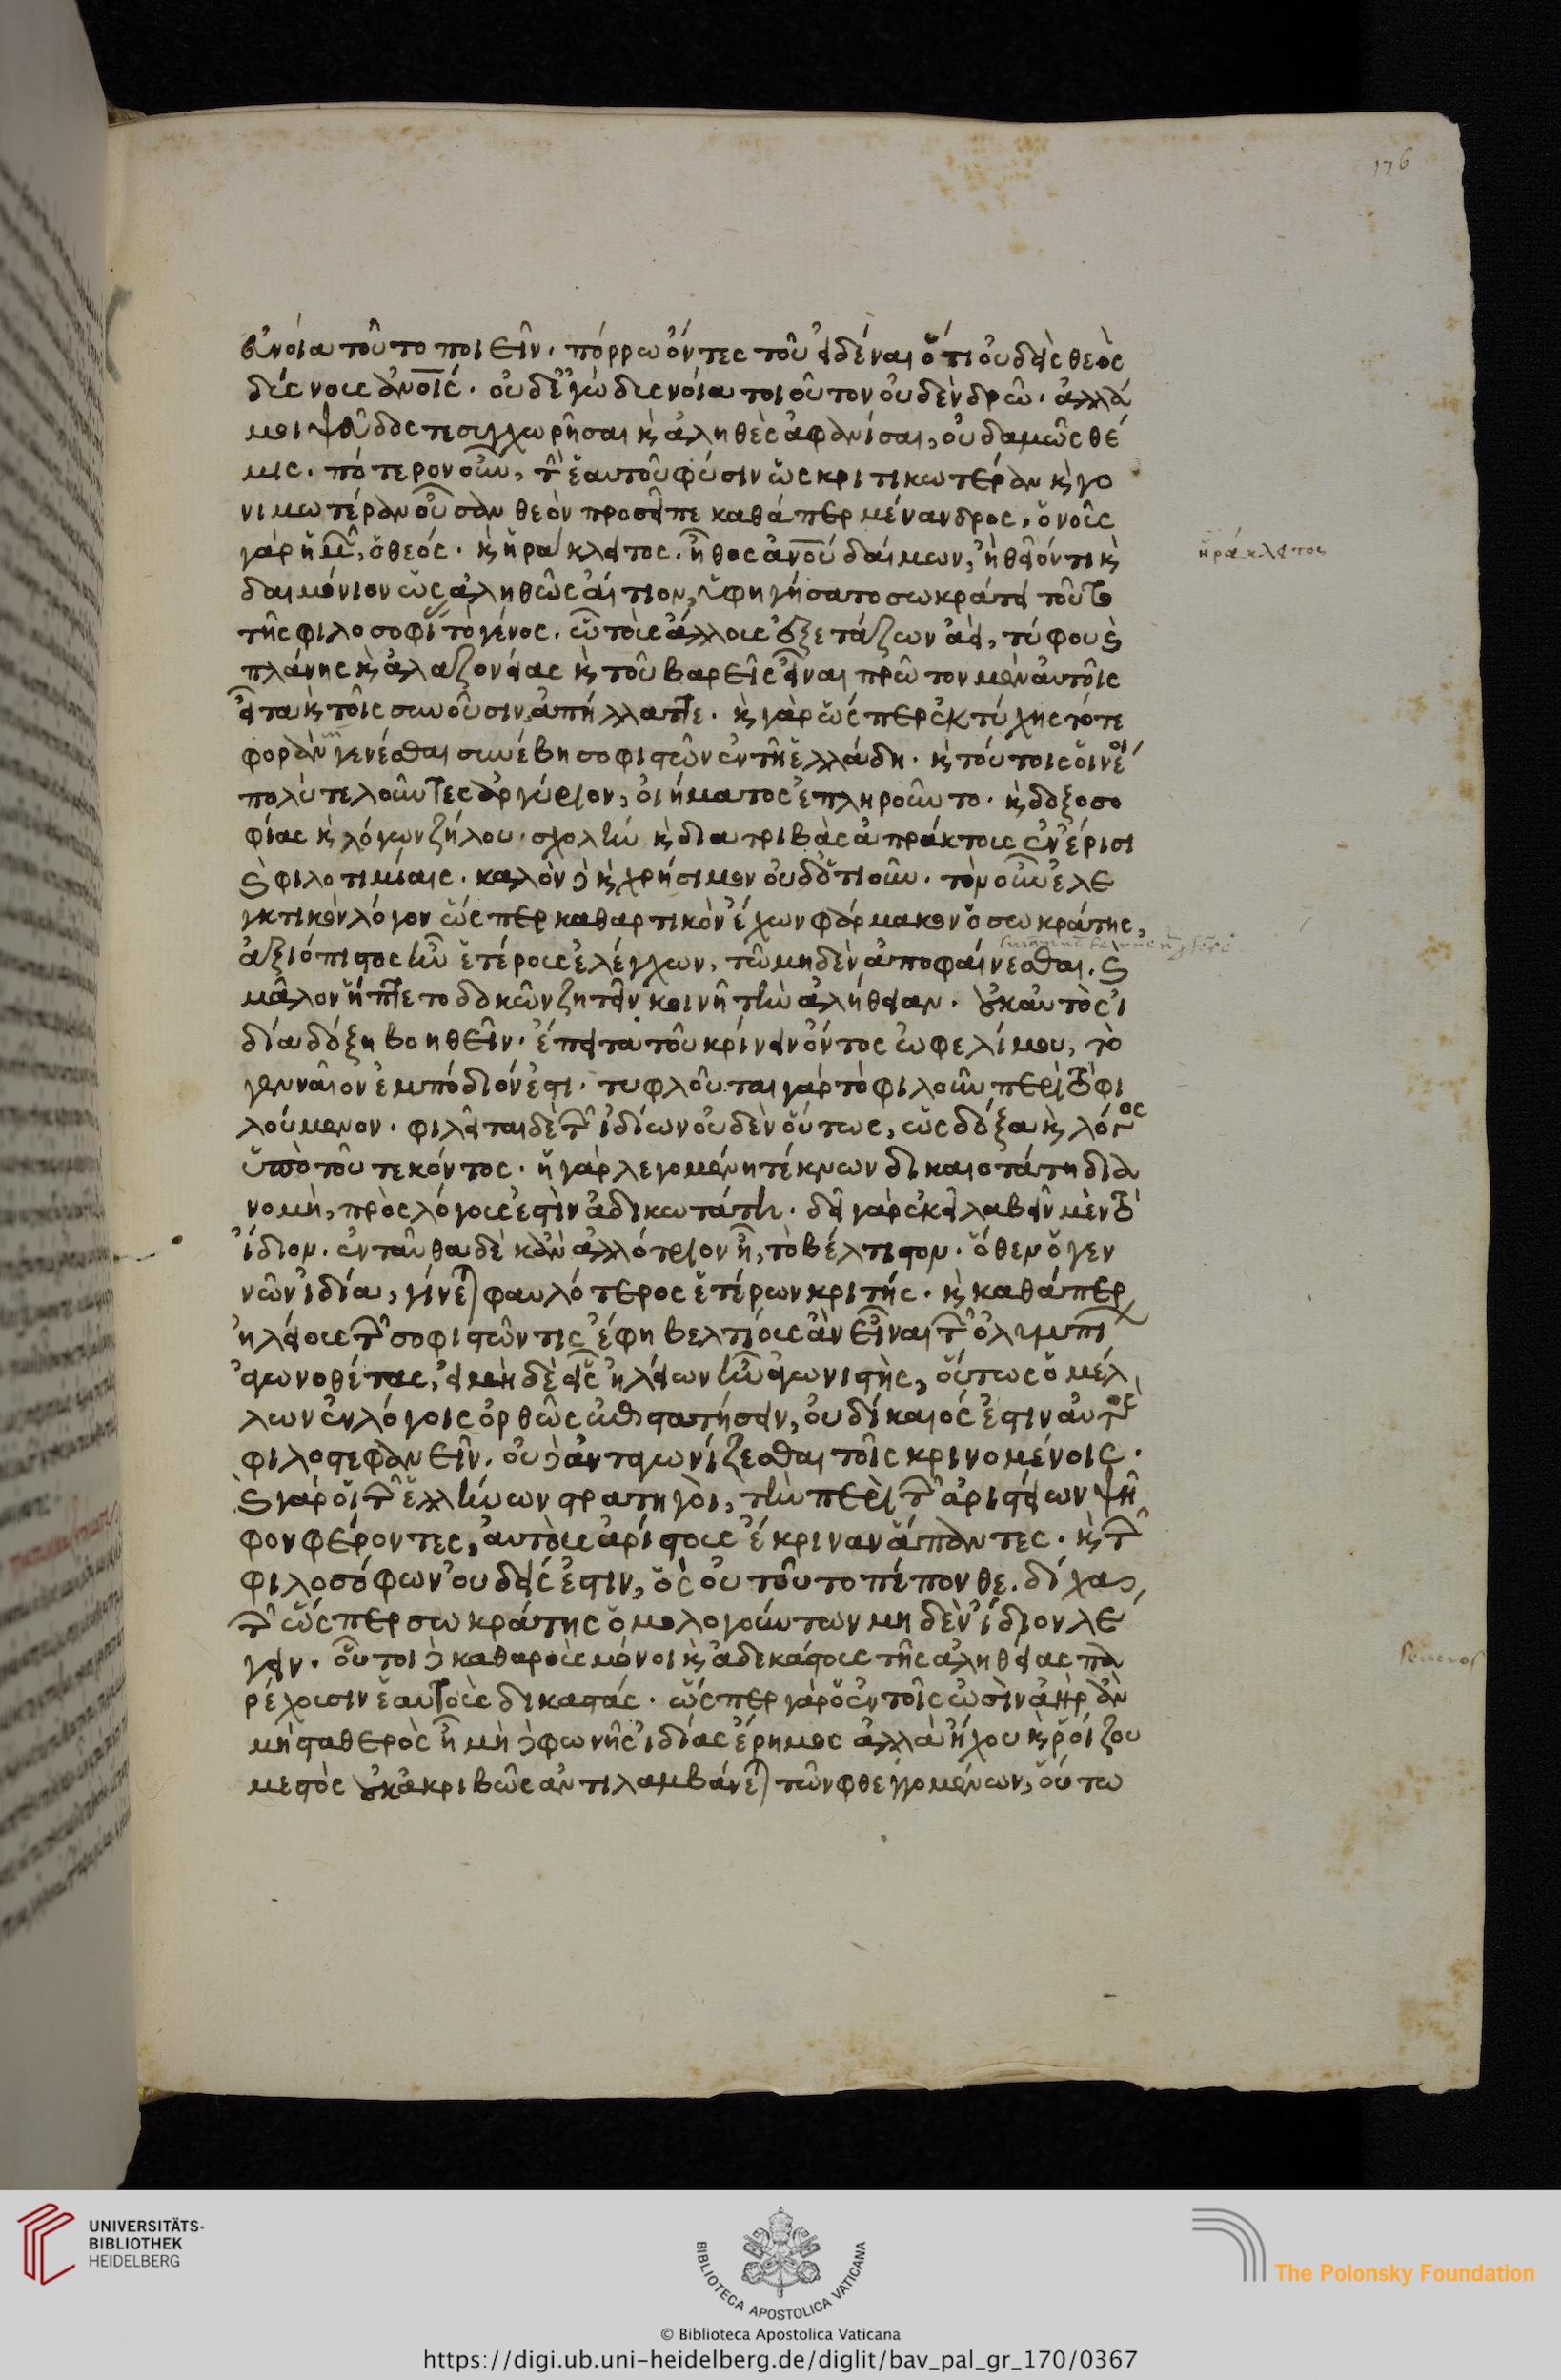 176
εὐνοία τοῦτο ποιεῖν. πόρρω ὄντες τοῦ εἰδέναι ὅτι οὐδεὶς θεὸς
δύςνους ἀνοις. οὐδ' ἐγὼ δυςνοία τοιοῦτον οὐδὲν δρῶ. ἀλλά
μοι ψεῦδός τε συγχωρῆσαι κ ἀληθὲς ἀφανίσαι, οὐδαμῶς θέ
μις. πότερον οὖν, τ ἑαυτοῦ φύσιν ὡς κριτικωτέραν κ γο
νιμωτέραν οὖσαν θεὸν προσεῖπε καθάπερ μένανδρος, ὁ νοῦς
γὰρ ἡμ, ὁ θεός. κ ἡράκλειτος. ἦθος ἀνου δαίμων, ἢ θεῖόν τι κ
ἡράκλειτος
δαιμόνιον ὡς ἀληθῶς αἴτιον, ὑφηγήσατο σωκράτει τοῦτο
τῆς φιλοσοφι τὸ γένος. ὧ τοὺς ἄλλους ἐξετάζων ἀεὶ, τύφου κ
πλάνης κ ἀλαζονείας κ τοῦ βαρεῖς εἶναι πρῶτον μὲν αὑτοῖς
εἶτα κ τοῖς συνοῦσιν, ἀπήλλαττε. κ γὰρ ὥσπερ ἐκ τύχης τότε
φορὰν γενέσθαι συνέβη σοφιστῶν ἐν τῆ ἑλλάδη. κ τούτοις οἱ νέοι
πολὺ τελοῦντες ἀργύριον, οἰήματος ἐπληροῦντο. κ δοξοσο
φίας κ λόγων ζήλου. σχολὴν κ διατριβὰς ἀπράκτους ἐν ἔρισι
κ φιλοτιμίαις. καλὸν δὲ κ χρήσιμον οὐδ' ὁτιοῦν. τὸν οὖν ἐλε
γκτικὸν λόγον ὥσπερ καθαρτικὸν ἔχων φάρμακον ὁ σωκράτης,
ἀξιόπιστος ἦν ἑτέρους ἐλέγχων, τῶ μηδὲν ἀποφαίνεσθαι. κ
μᾶλον ἥπτετο δοκῶν ζητεῖν κοινῆ τὴν ἀλήθειαν. οὐκ αὐτὸς ἰ
δία δόξη βοηθεῖν. ἔπειτα τοῦ κρίνειν ὄντος ὠφελίμου, τὸ
γεννᾶιον ἐμπόδιόν ἐστι. τυφλοῦται γὰρ τὸ φιλοῦν περὶ τὸ φι
λούμενον. φιλεῖται δὲ τ ἰδίων οὐδὲν οὕτως, ὡς δόξα κ λόγος
ὑπὸ τοῦ τεκόντος. ἡ γὰρ λεγομένη τέκνων δικαιοτάτη δια
νομὴ, πρὸς λόγους ἐστὶν ἀδικωτάτη. δεῖ γὰρ ἐκεῖ λαβεῖν μὲν τὸ
ἴδιον. ἐνταῦθα δὲ κἂν ἀλλότριον ἦ, τὸ βέλτιστον. ὅθεν ὁ γεν
νῶν ἰδία, γίνε φαυλότερος ἑτέρων κριτής. κ καθάπερ
ἠλείους τ σοφιστῶν τις ἔφη βελτίους ἂν εἶναι τ ὀλυμπι
ἀγωνοθέτας, εἰ μηδὲ εἷς ἠλείων ἦν ἀγωνιστὴς, οὕτως ὁ μέλ
λων ἐν λόγοις ὀρθῶς ἐπιστατήσειν, οὐ δίκαιός ἐστιν αὐτὸς
φιλοστεφανεῖν. οὐδὲ ἀνταγωνίζεσθαι τοῖς κρινομένοις.
κ γὰρ οἱ τ ἑλλήνων στρατηγὸι, τὴν περὶ τ ἀριστείων ψῆ
φον φέροντες, αὑτοὺς ἀρίστους ἔκριναν ἅπαντες. κ τ
φιλοσόφων οὐδείς ἐστιν, ὃς οὐ τοῦτο πέπονθε. δίχα
τ ὥσπερ σωκράτης ὁμολογούντων μηδὲν ἴδιον λέ
γειν. οὗτοι δὲ καθαροὺς μόνοι κ ἀδεκάστους τῆς ἀληθείας πα
ρέχουσιν ἑαυτοὺς δικαστάς. ὥσπερ γὰρ ὁ ἐν τοῖς ὠσὶν ἀὴρ ἂν
μὴ σταθερὸς ἦ μὴ δὲ φωνῆς ἰδίας ἔρημος ἀλλὰ ἤχου κ ῥοίζου
μεστὸς οὐκ ἀκριβῶς ἀντιλαμβάνε τῶν φθεγγομένων, οὕτω
UNIVERSITÄTS-
BIBLIOTHEK
HEIDELBERG
BIBLIOTECA APOSTOLICA VATICANA
The Polonsky Foundation
© Biblioteca Apostolica Vaticana
https://digi.ub.uni-heidelberg.de/diglit/bav_pal_gr_170/0367